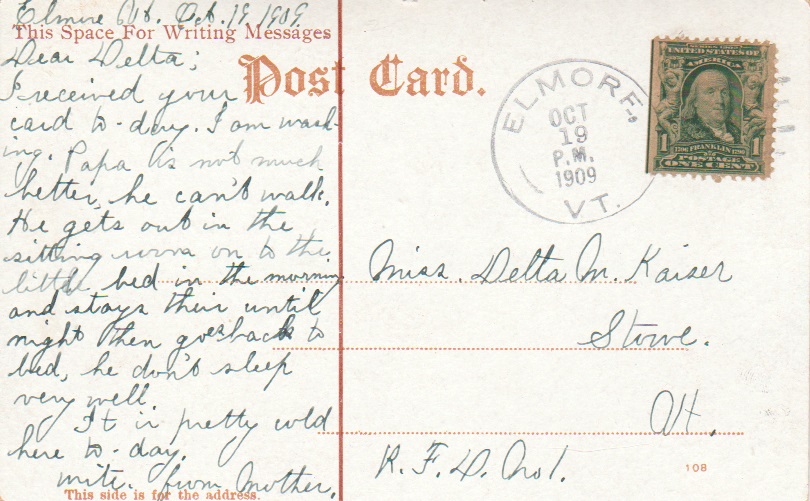 Elmore Vt. Oct. 19, 1909.
This Space For Writing Messages
Dear Delta;
I received your
card to-day. I am wash-
ing. Papa is not much
better, he can't walk.
He gets out in the
sitting room on to the
little bed in the morning
and stays their until
night then goes back to
bed, he don't sleep
very well.
It is pretty cold
here to-day.
write. from Mother.
This side is for the address.
Post Card.
ELMORE,
OCT
19
P.M.
1909
VT.
SERIES 1902
UNITED STATES OF
AMERICA
1 1
1706 FRANKLIN 1790
POSTAGE
ONE CENT
Miss. Delta M. Kaiser
Stowe.
Vt.
R. F. D. No 1.
108